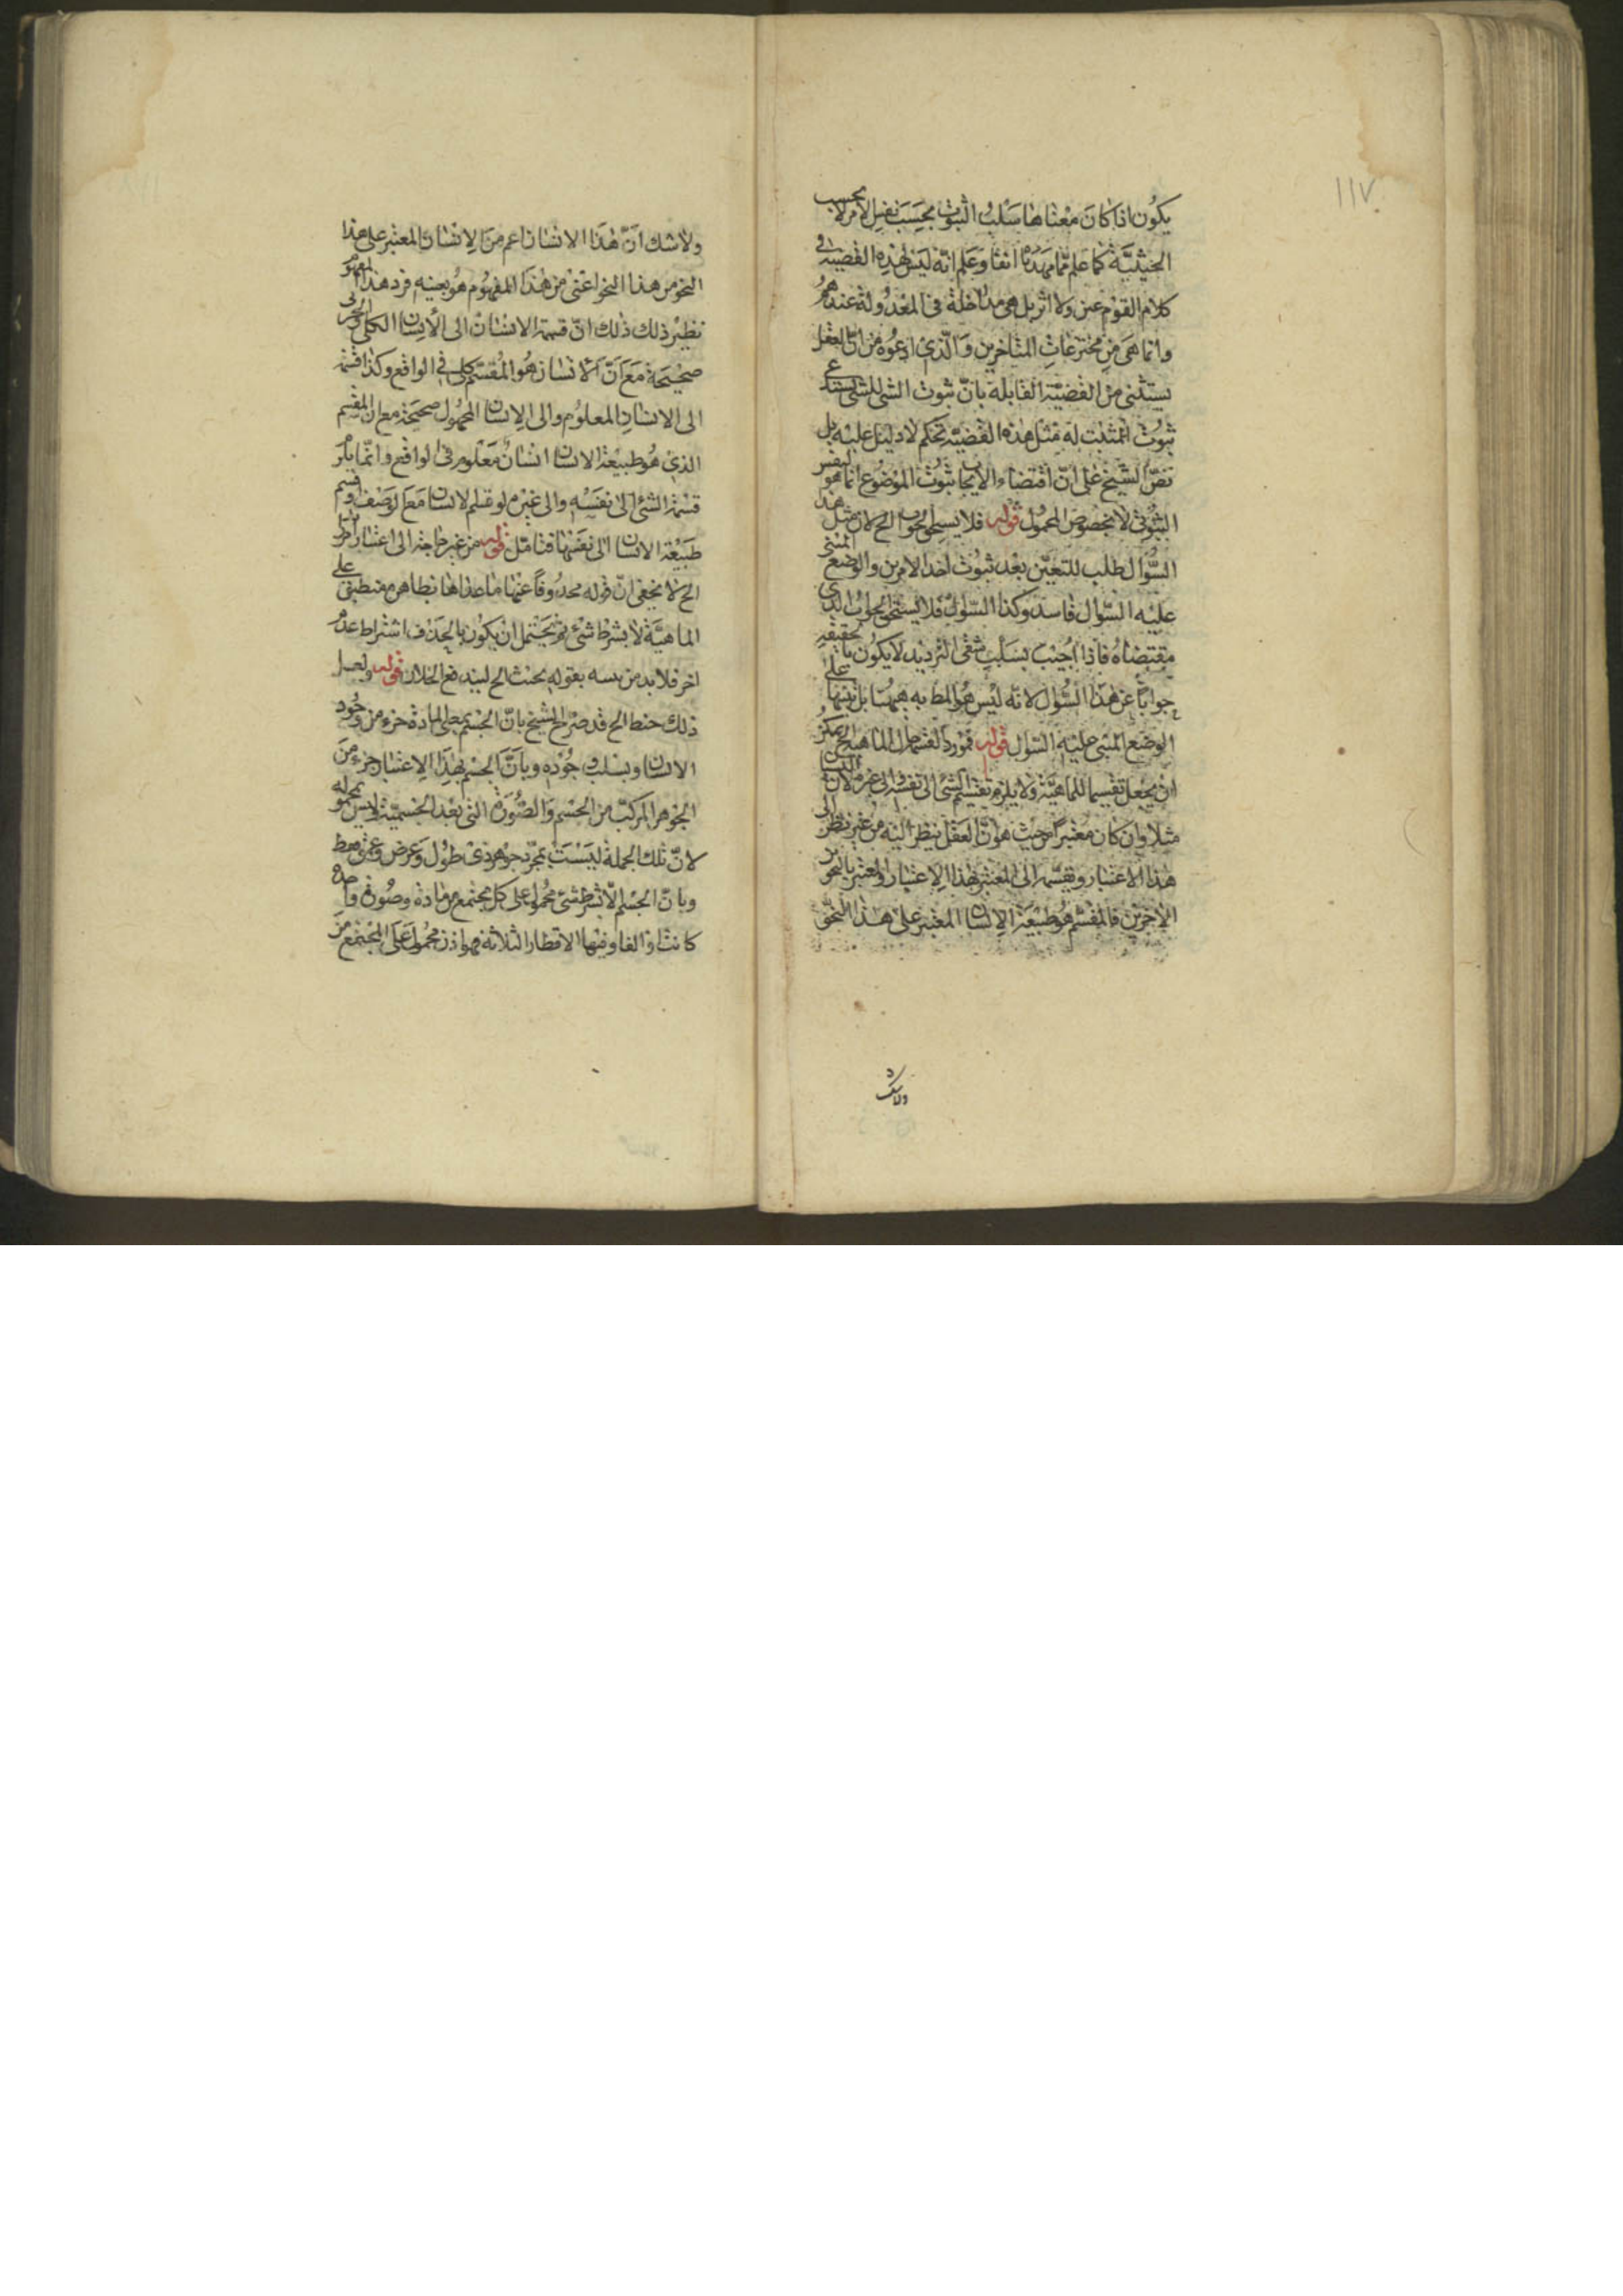 ١١٧
يكون اذا كان معناها سلب الثبوت بحسب نفس الامر لا بحسب
الحيثية كما علم مما مهدنا انفا وعلم انه ليس لهذه القضية في
كلام القوم عين ولا اثر بل هى داخلة فى المعدولة عندهم
وانما هى من مخترعات المتاخرين والذى ادعوه من ان العقل
يستثنى من القضية القابلة بان ثبوت الشى للشى يستدعى
ثبوت المثبت له مثل هذه القضية تحكم لا دليل عليه بل
نص الشيخ على ان اقتضاء الايجاب ثبوت الموضوع انما هو لنفس
الثبوت لا بخصوص المحمول قوله فلا يستحق الجواب الخ لان مثل هذا
السؤال طلب للتعين بعد ثبوت احد الامرين والوضع المبنى
عليه السؤال فاسد وكذا السؤال فلا يستحق الجواب الذى
مقتضاه فاذا اجيب بسلب شقى الترديد لا يكون بالحقيقة
جوابا عن هذا السؤال لانه ليس هو المط به بل تنبيها على
الوضع المبنى عليه السؤال قوله فمورد القسمة حال الماهية الخ يمكن
ان يجعل تقسيما للماهية ولا يلزم تقسيم الشئ الى نفسه والى غيره لان
مثلا وان كان معتبرا من حيث هو ان العقل ينظر اليه من غير نظر الى
هذا الاعتبار ويقسمه الى المعتبر بهذا الاعتبار والمعتبر بالنحو
الاخرين فالمقسم هو طبيعة الانسان المعتبر على هذا النحو
ولاشك
ولاشك ان هذا الانسان اعم من الانسان المعتبر على هذا
النحو من هذا النحو اعنى من هذا المفهوم هو بعينه فرد هذا المفهوم
نظير ذلك ذلك ان قسمة الانسان الى الانسان الكلى والجزئى
صحيحة مع ان الانسان هو المقسم كلى فى الواقع وكذا قسمة
الى الانسان المعلوم والى الانسان المجهول صحيحة مع ان المقسم
الذى هو طبيعة الانسان انسان معلوم فى الواقع وانما يلزم
قسمة الشئ الى نفسه والى غيره لو قسم الانسان مع الوصف وقسم
طبيعة الانسان الى نفسها فتامل قوله من غير حاجة الى اعتبار
الخ لا يخفى ان قوله محذوفا عنها ما عداها بظاهره منطبق على
الماهية لا بشرط شئ نعم يحتمل ان يكون بالحذف اشتراط عدم
اخر فلا بد من بقوله بحيث الخ ليندفع الخلل قوله
ذلك خبط الخ قد صرح الشيخ بان الجسم بمعنى المادة جزء من وجود
الانسان وبسلب وجوده وبان الجسم بهذا الاعتبار جزء من
الجوهر المركب من الجسم والصورة التى بعد الجسمية وليس بمحموله
لان تلك الجملة ليست بمجرد جوهر ذى طول وعرض وعمق فقط
وبان الجسم لا بشرط شئ محمول على كل مجتمع من مادة وصورة واحدة
كانت او الفا وفيها الاقطار الثلاثة فهو اذن محمول على المجتمع من